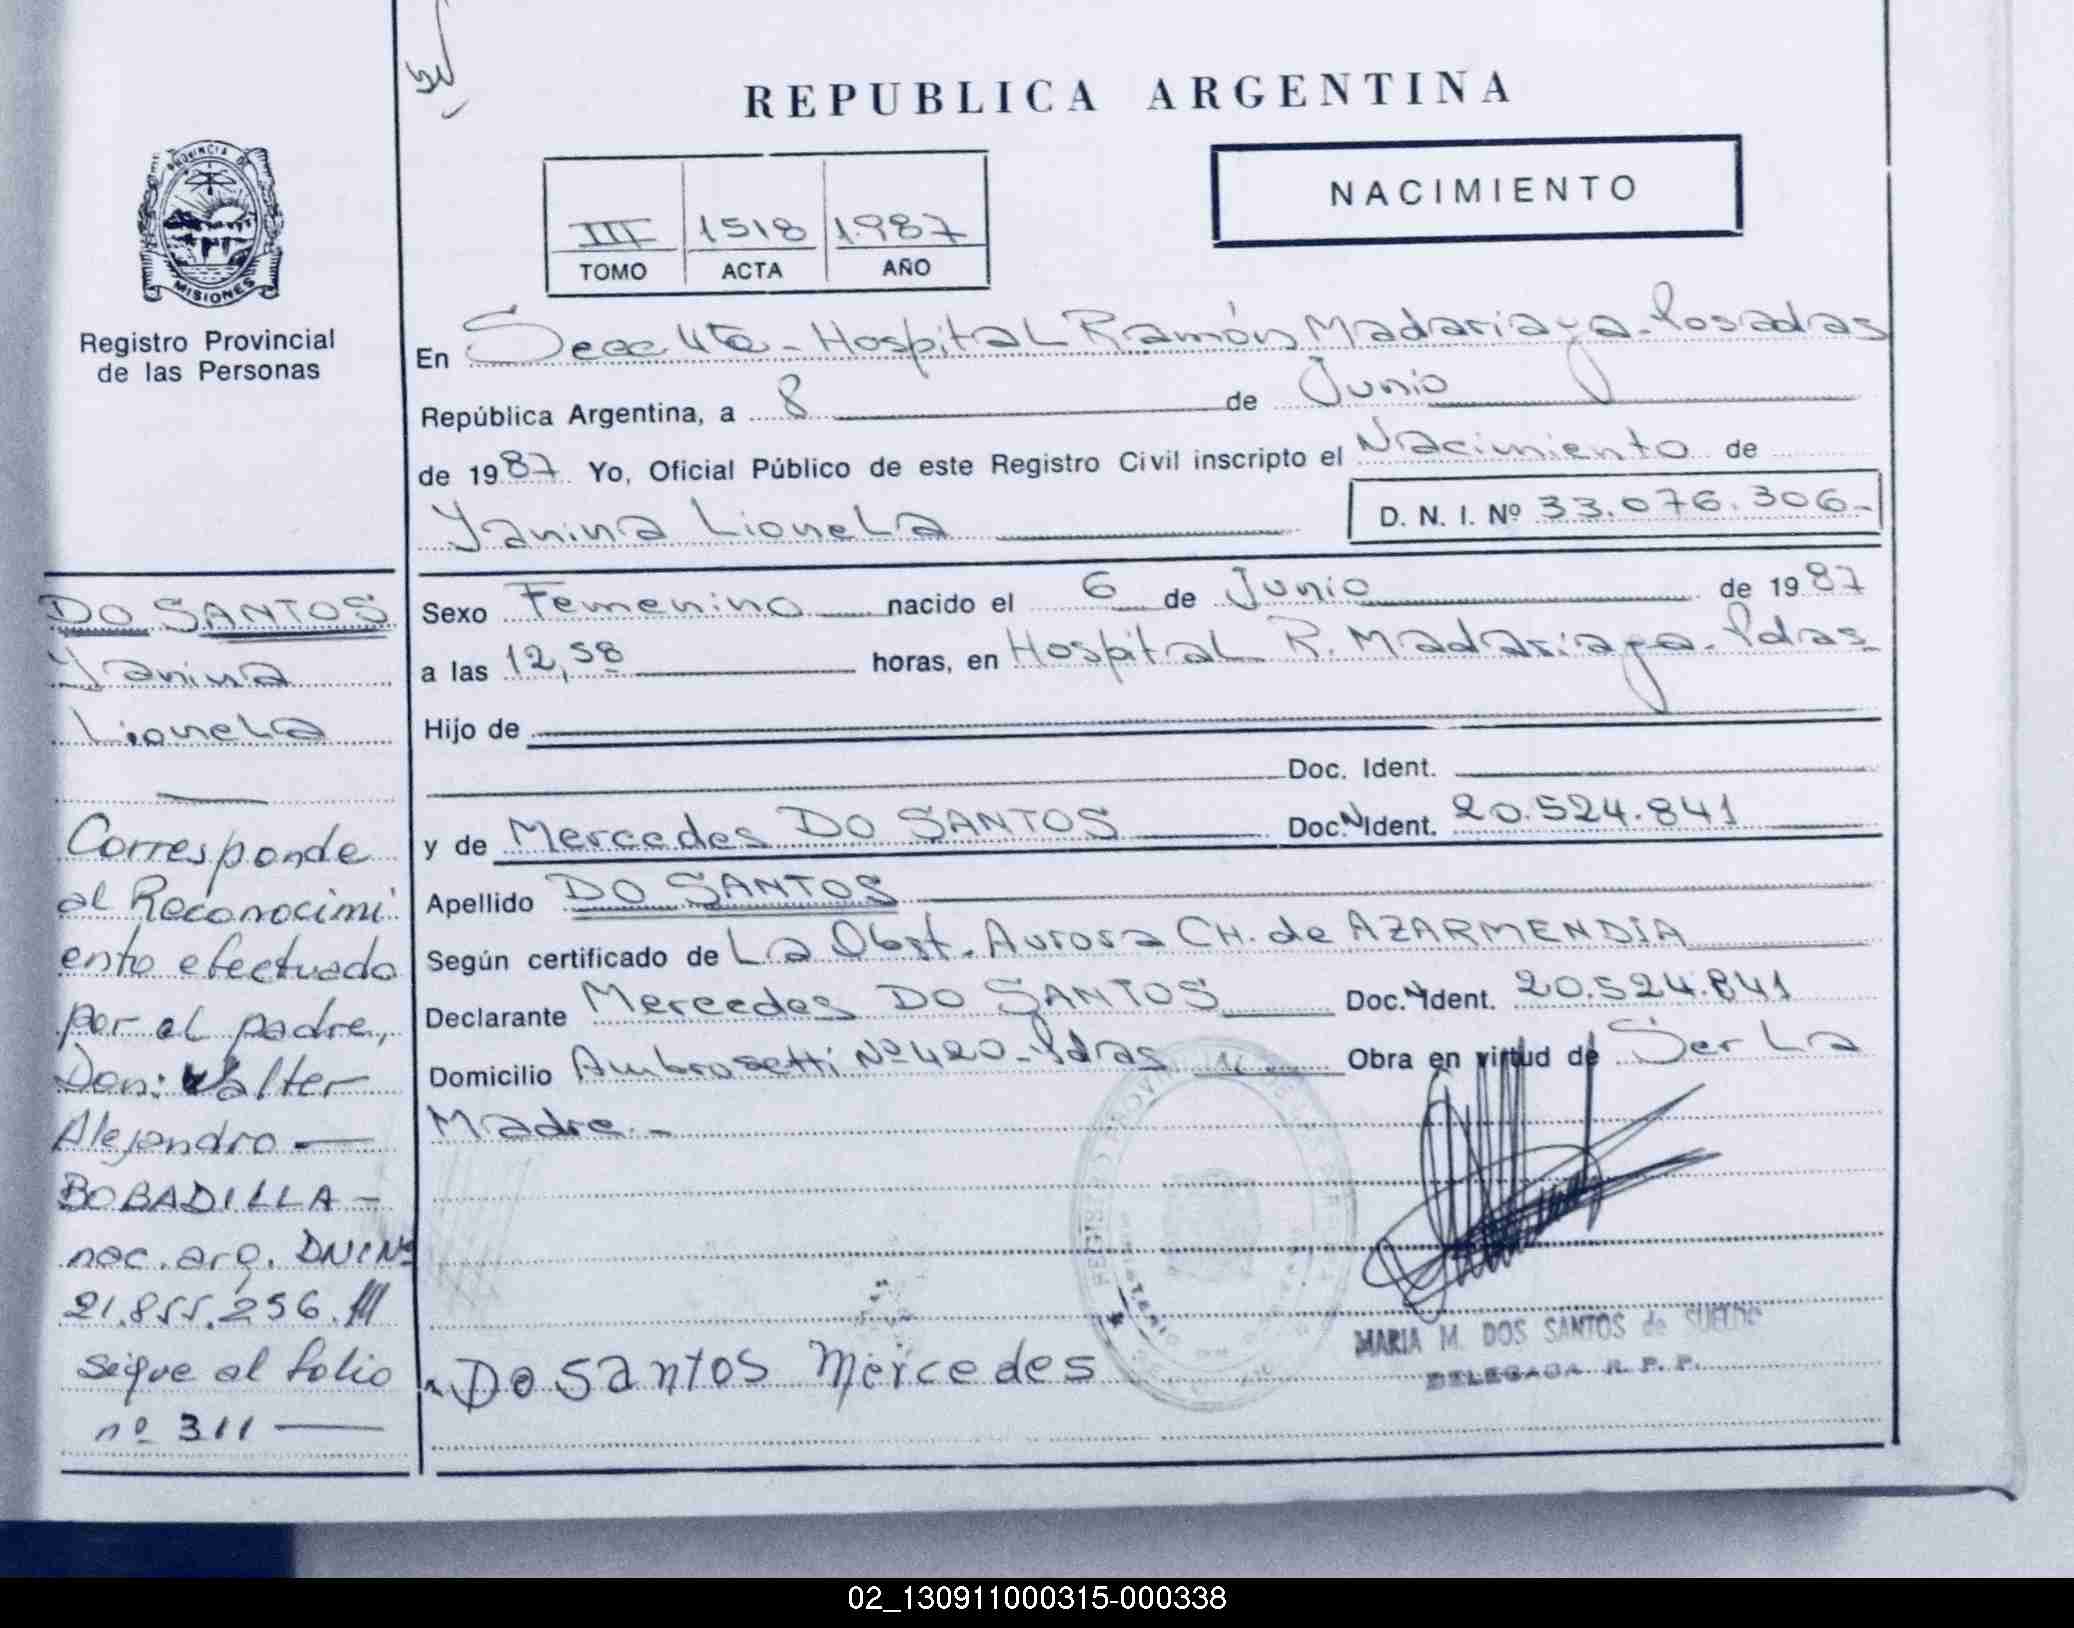 REPUBLICA ARGENTINA
NACIMIENTO
III 1518 1987
TOMO ACTA AÑO
PROVINCIA DE
MISIONES
Registro Provincial
de las Personas
En Secc 4ta - Hospital Ramón Madariaga - Posadas
República Argentina, a 8 de Junio
de 1987 Yo, Oficial Público de este Registro Civil inscripto el Nacimiento de
Yanina Lionela D. N. I. Nº 33.076.306-
Sexo Femenino nacido el 6 de Junio de 1987
a las 12,58 horas, en Hospital R. Madariaga - Pdas
Hijo de
Doc. Ident.
y de Mercedes DO SANTOS Doc. N Ident. 20.524.841
Apellido DO SANTOS
Según certificado de La Obst. Aurora CH. de AZARMENDIA
Declarante Mercedes DO SANTOS Doc. N Ident. 20.524.841
Domicilio Ambrosetti Nº 420 - Pdas Obra en virtud de Ser La
Madre. -
Do Santos Mercedes
MARIA M. DOS SANTOS de SUELDO
DELEGADA R. P. P.
DO SANTOS
Yanina
Lionela
Corresponde
al Reconocimi
ento efectuado
por el padre,
Don: Walter
Alejandro —
BOBADILLA -
nac. arg. DNI Nº
21.855.256.
sigue al folio
nº 311 —
02_130911000315-000338